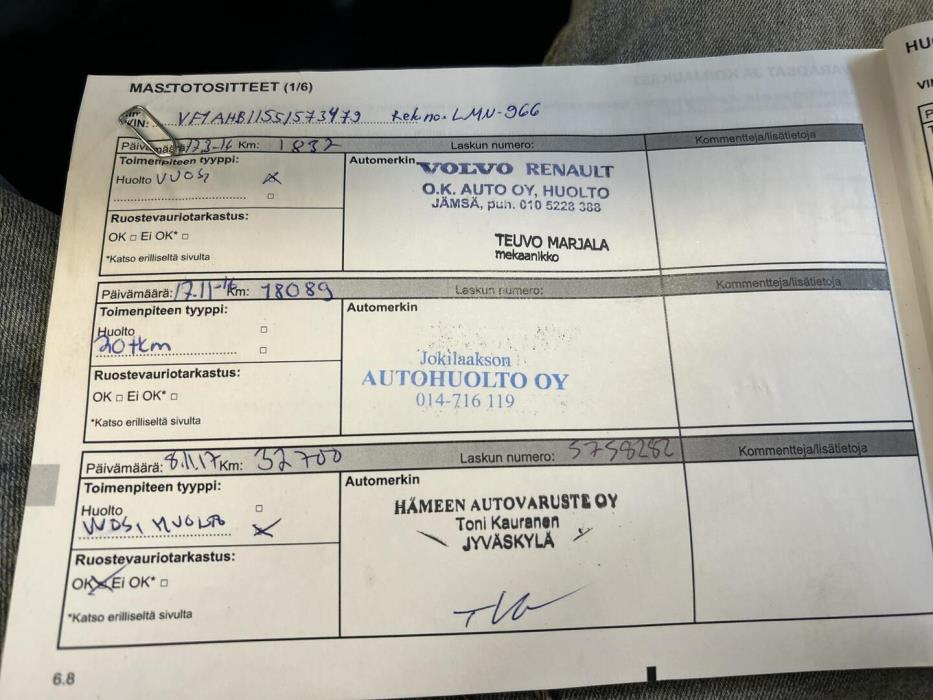 MASTOTOSITTEET (1/6)
VIN: VF1AHB11551573479 Rek no. LMN-966
Päivämäärä: Km: 1832 Laskun numero: Kommentteja/lisätietoja
Toimenpiteen tyyppi: Automerkin
Huolto VUOSI
VOLVO RENAULT
O.K. AUTO OY, HUOLTO
JÄMSÄ, puh. 010 5228 388
Ruostevauriotarkastus:
OK □ Ei OK* □
TEUVO MARJALA
mekaanikko
*Katso erilliseltä sivulta
Päivämäärä: 17.11-16 Km: 18089 Laskun numero: Kommentteja/lisätietoja
Toimenpiteen tyyppi: Automerkin
Huolto
30tkm
Jokilaakson
AUTOHUOLTO OY
014-716 119
Ruostevauriotarkastus:
OK □ Ei OK* □
*Katso erilliseltä sivulta
Päivämäärä: 8.11.17 Km: 32700 Laskun numero: 5758282 Kommentteja/lisätietoja
Toimenpiteen tyyppi: Automerkin
Huolto
VUOSI HUOLTO
HÄMEEN AUTOVARUSTE OY
Toni Kauranen
JYVÄSKYLÄ
Ruostevauriotarkastus:
OK Ei OK* □
*Katso erilliseltä sivulta
6.8
HU
VI